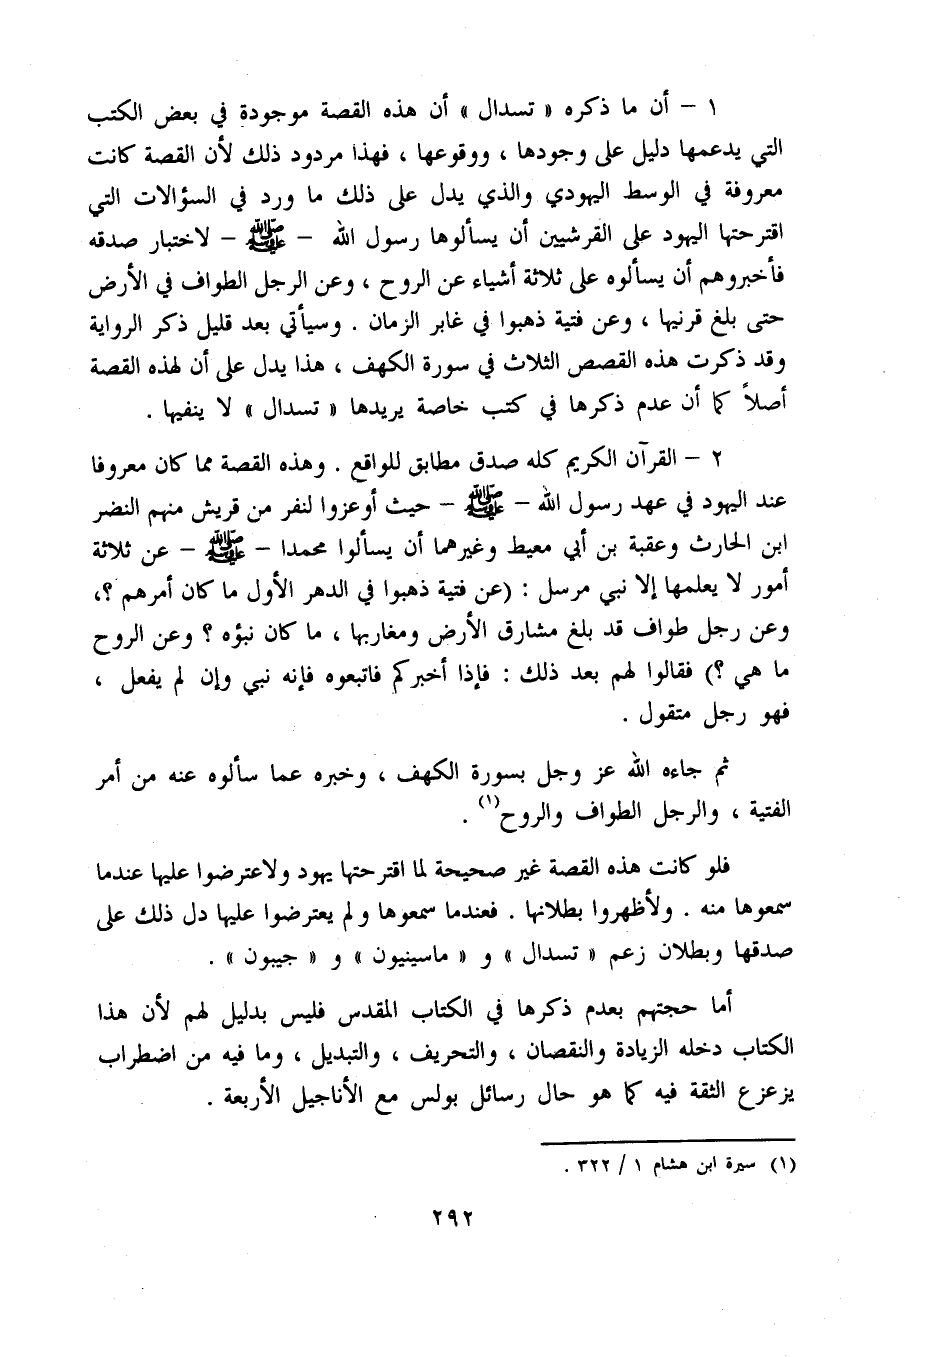 ١ – أن ما ذكره « تسدال » أن هذه القصة موجودة في بعض الكتب
التي يدعمها دليل على وجودها ، ووقوعها ، فهذا مردود ذلك لأن القصة كانت
معروفة في الوسط اليهودي والذي يدل على ذلك ما ورد في السؤالات التي
اقترحتها اليهود على القرشيين أن يسألوها رسول الله – ﷺ – لاختبار صدقه
فأخبروهم أن يسألوه على ثلاثة أشياء عن الروح ، وعن الرجل الطواف في الأرض
حتى بلغ قرنيها ، وعن فتية ذهبوا في غابر الزمان . وسيأتي بعد قليل ذكر الرواية
وقد ذكرت هذه القصص الثلاث في سورة الكهف ، هذا يدل على أن لهذه القصة
أصلاً كما أن عدم ذكرها في كتب خاصة يريدها « تسدال » لا ينفيها .
٢ – القرآن الكريم كله صدق مطابق للواقع . وهذه القصة مما كان معروفا
عند اليهود في عهد رسول الله – ﷺ – حيث أوعزوا لنفر من قريش منهم النضر
ابن الحارث وعقبة بن أبي معيط وغيرهما أن يسألوا محمدا – ﷺ – عن ثلاثة
أمور لا يعلمها إلا نبي مرسل : (عن فتية ذهبوا في الدهر الأول ما كان أمرهم ؟،
وعن رجل طواف قد بلغ مشارق الأرض ومغاربها ، ما كان نبؤه ؟ وعن الروح
ما هي ؟) فقالوا لهم بعد ذلك : فإذا أخبركم فاتبعوه فإنه نبي وإن لم يفعل ،
فهو رجل متقول .
ثم جاءه الله عز وجل بسورة الكهف ، وخبره عما سألوه عنه من أمر
الفتية ، والرجل الطواف والروح(١) .
فلو كانت هذه القصة غير صحيحة لما اقترحتها يهود ولاعترضوا عليها عندما
سمعوها منه . ولأظهروا بطلانها . فعندما سمعوها ولم يعترضوا عليها دل ذلك على
صدقها وبطلان زعم « تسدال » و « ماسينيون » و « جيبون » .
أما حجتهم بعدم ذكرها في الكتاب المقدس فليس بدليل لهم لأن هذا
الكتاب دخله الزيادة والنقصان ، والتحريف ، والتبديل ، وما فيه من اضطراب
يزعزع الثقة فيه كما هو حال رسائل بولس مع الأناجيل الأربعة .
(١) سيرة ابن هشام ١ / ٣٢٢ .
٢٩٢